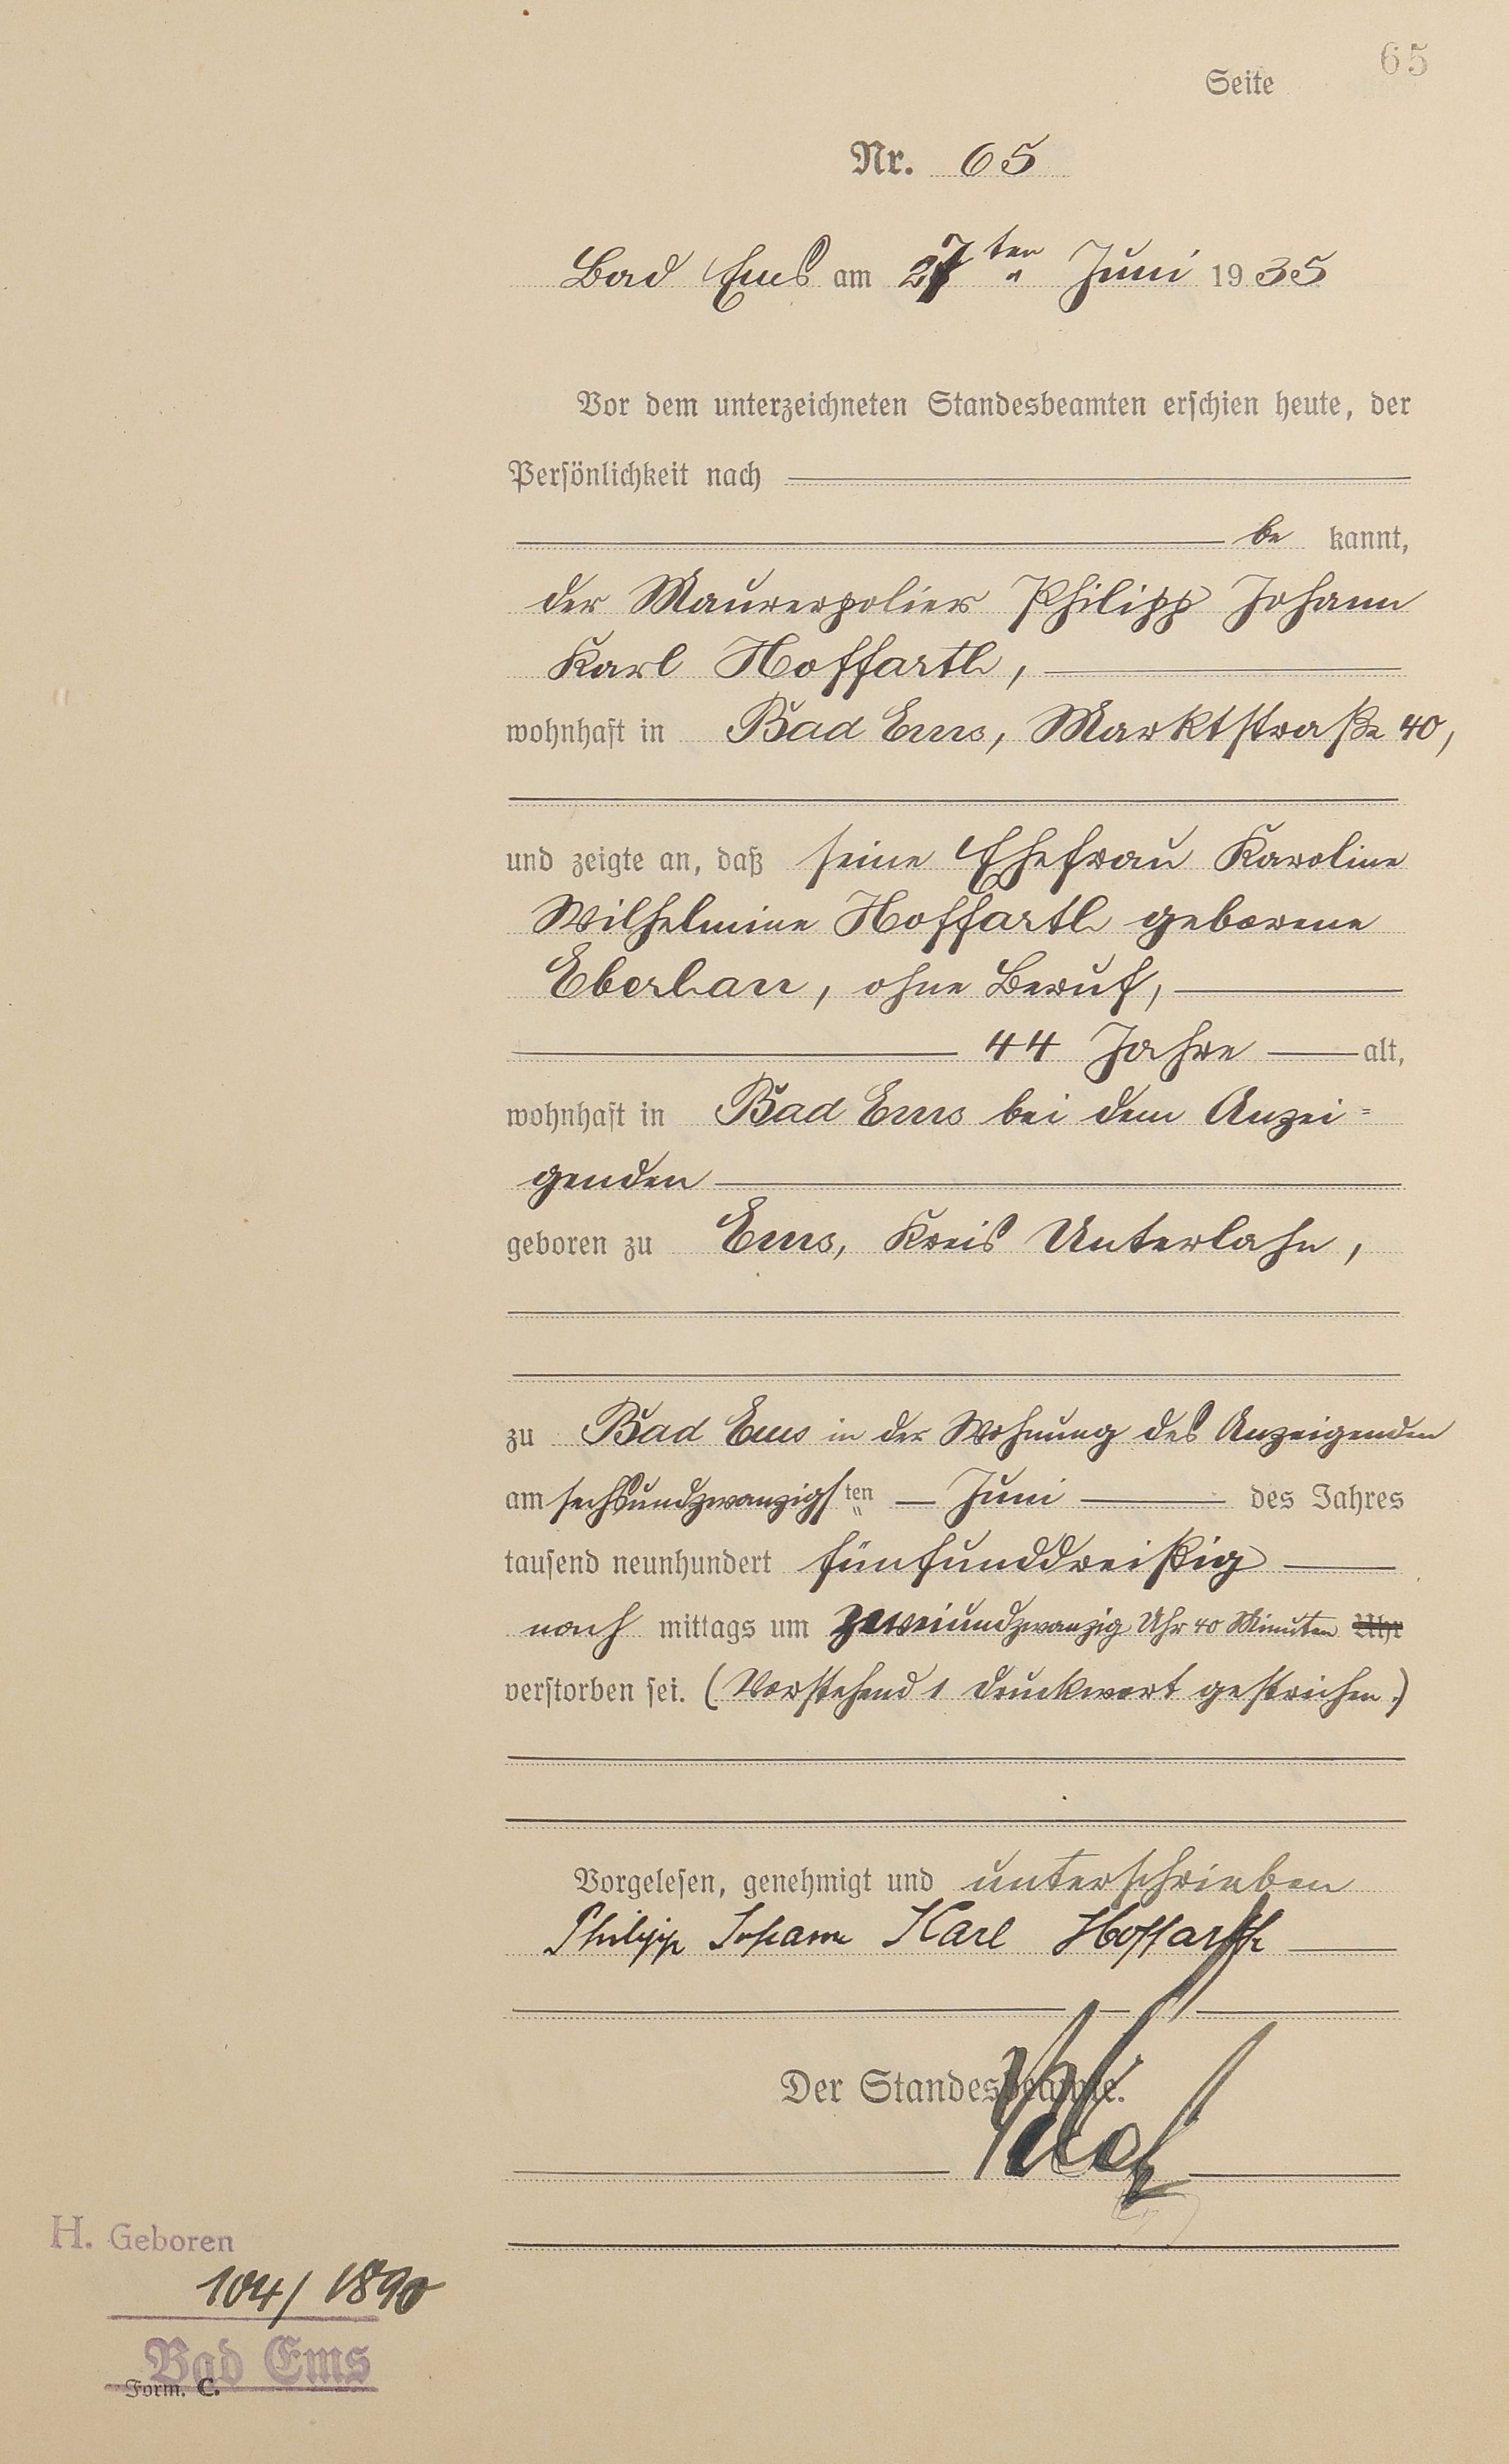 65
Seite
Nr. 65
Bad Ems am 27ten Juni 1935
Vor dem unterzeichneten Standesbeamten erschien heute, der
Persönlichkeit nach
be kannt,
der Maurerpolier Philipp Johann
Karl Hoffarth,
wohnhaft in Bad Ems, Marktstraße 40,
und zeigte an, daß seine Ehefrau Karoline
Wilhelmine Hoffarth geborene
ohne Beruf,
44 Jahre alt,
wohnhaft in Bad Ems bei dem Anzei=
genden
geboren zu Ems, Kreis Unterlahn,
zu Bad Ems in der Wohnung des Anzeigenden
am sechsundzwanzigsten Juni des Jahres
tausend neunhundert fünfunddreißig
nach mittags um zweiundzwanzig Uhr 40 Minuten Uhr
verstorben sei. (Vorstehend 1 Druckwort gestrichen.)
Vorgelesen, genehmigt und unterschrieben
Philipp Johann Karl Hoffarth
Der Standesbeamte.
H. Geboren
104/1890
Bad Ems
Form. C.